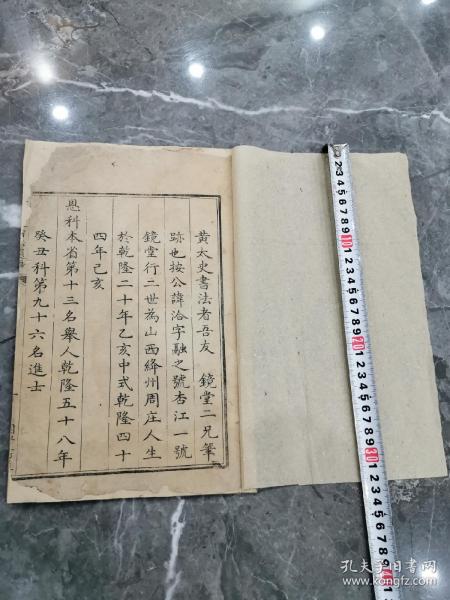 黃太史書法者吾友　鏡堂二兄筆
跡也按公諱洽字融之號杏江一號
鏡堂行二世為山西絳州周庄人生
於乾隆二十年乙亥中式乾隆四十
四年己亥
恩科本省第十三名舉人乾隆五十八年
癸丑科第九十六名進士
2 3 4 5 6 7 8 9 10 1 2 3 4 5 6 7 8 9 20 1 2 3 4 5 6 7 8 9 30 1 2 3 4 5 6 7 8 9
孔夫子旧书网
www.kongfz.com